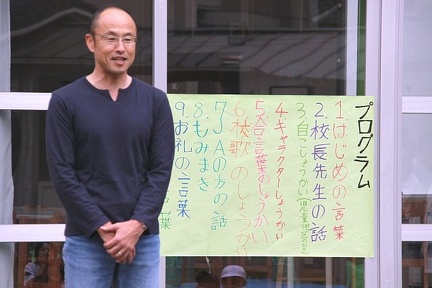 プログラム
1.はじめの言葉
2.校長先生の話
3.自こしょうかい
4.キャラクターしょうかい
5.合言葉のしょうかい
6.校歌のしょうかい
7.JAの方の話
8.もみまき
9.お礼の言葉